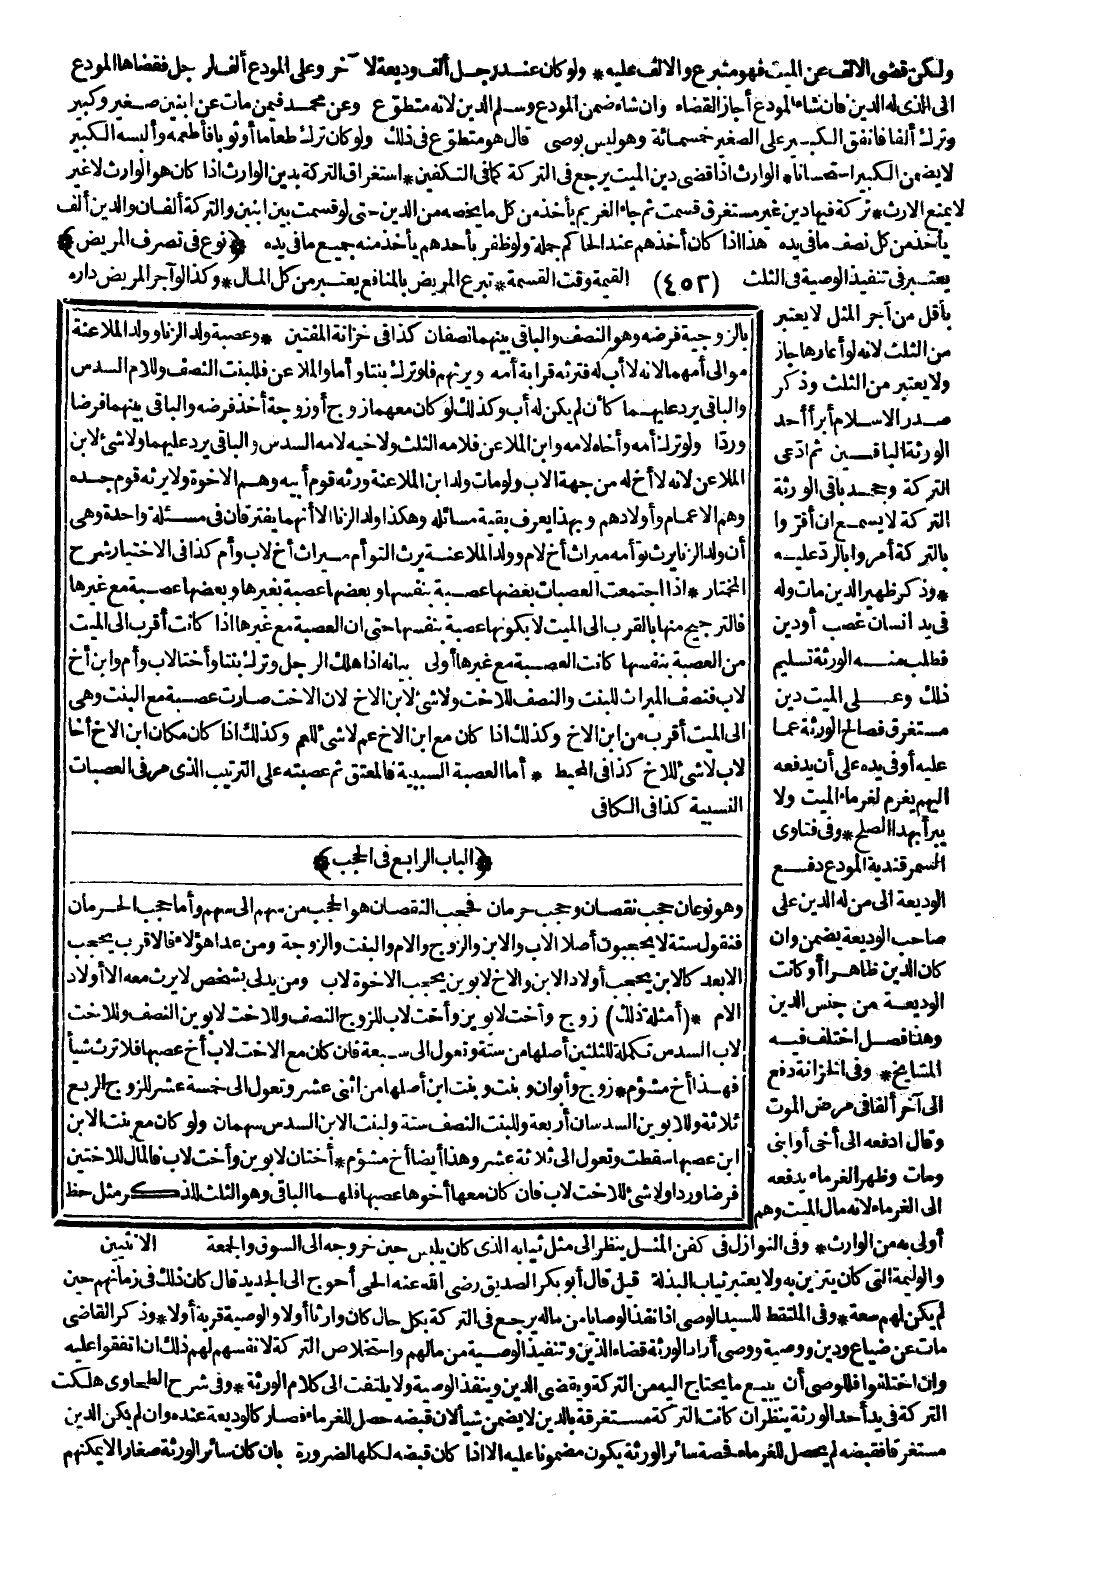 ولكن قضى الالف عن الميت فهو متبرع والالف عليه * ولو كان عند رجل ألف وديعة لآخر وعلى المودع ألف لرجل فقضاها المودع
الى الذى له الدين فان شاء المودع أجاز القضاء وان شاء ضمن المودع وسلم الدين لانه متطوّع وعن محمد فيمن مات عن ابنين صغير وكبير
وترك ألفا فانفق الكبير على الصغير خمسمائة وهو ليس بوصى قال هو متطوّع فى ذلك ولو كان ترك طعاما أو ثوبا فأطعمه وألبسه الكبير
لا يضمن الكبير استحسانا * الوارث اذا قضى دين الميت يرجع فى التركة كما فى التكفين * استغراق التركة بدين الوارث اذا كان هو الوارث لا غير
لا يمنع الارث * تركة فيها دين غير مستغرق قسمت ثم جاء الغريم يأخذ من كل ما يخصه من الدين حتى لو قسمت بين ابنين والتركة ألفان والدين ألف
يأخذ من كل نصف ما فى يده هذا اذا كان أخذهم عند الحاكم جملة ولو ظفر بأحدهم يأخذ منه جميع ما فى يده ﴿نوع فى تصرف المريض﴾
يعتبر فى تنفيذ الوصية فى الثلث (٤٥٢) القيمة وقت القسمة * تبرع المريض بالمنافع يعتبر من كل المال * وكذا لو آجر المريض داره
بأقل من آجر المثل لا يعتبر
من الثلث لانه لو أعارها جاز
ولا يعتبر من الثلث وذكر
صدر الاسلام أبرأ أحد
الورثة الباقين ثم ادّعى
التركة وجحد باقى الورثة
التركة لا يسمع ان أقرّوا
بالتركة أمروا بالردّ عليه
* وذكر ظهير الدين مات وله
فى يد انسان غصب أو دين
فطلب منه الورثة تسليم
ذلك وعلى الميت دين
مستغرق فصالح الورثة عما
عليه أو فى يده على أن يدفعه
اليهم يغرم لغرماء الميت ولا
يبرأ بهذا الصلح * وفى فتاوى
السمرقندية المودع دفع
الوديعة الى من له الدين على
صاحب الوديعة يضمن وان
كان الدين ظاهرا أو كانت
الوديعة من جنس الدين
وهذا فصل اختلف فيه
المشايخ * وفى الخزانة دفع
الى آخر ألفا فى مرض الموت
وقال ادفعه الى أخى أو ابنى
ومات وظهر الغرماء يدفعه
الى الغرماء لانه مال الميت وهم
بالزوجية فرضه وهو النصف والباقى بينهما نصفان كذا فى خزانة المفتين * وعصبة ولد الزنا وولد الملاعنة
موالى أمهما لانه لا أب له فترثه قرابة أمه ويرثهم فلو ترك بنتا وأما والملاعن فللبنت النصف وللام السدس
والباقى يرد عليهما كأن لم يكن له أب وكذلك لو كان معهما زوج أو زوجة أخذ فرضه والباقى بينهما فرضا
وردّا ولو ترك أمه وأخاه لامه وابن الملاعن فلامه الثلث ولاخيه لامه السدس والباقى يرد عليهما ولا شئ لابن
الملاعن لانه لا أخ له من جهة الاب ولو مات ولد ابن الملاعنة ورثه قوم أبيه وهم الاخوة ولا يرثه قوم جده
وهم الاعمام وأولادهم وبهذا يعرف بقية مسائله وهكذا ولد الزنا الا أنهما يفترقان فى مسئلة واحدة وهى
أن ولد الزنا يرث توأمه ميراث أخ لام وولد الملاعنة يرث التوأم ميراث أخ لاب وأم كذا فى الاختيار شرح
المختار * اذا اجتمعت العصبات بعضها عصبة بنفسها وبعضها عصبة بغيرها وبعضها عصبة مع غيرها
فالترجيح منها بالقرب الى الميت لا بكونها عصبة بنفسها حتى ان العصبة مع غيرها اذا كانت أقرب الى الميت
من العصبة بنفسها كانت العصبة مع غيرها أولى بيانه اذا هلك الرجل وترك بنتا وأختا لاب وأم وابن أخ
لاب فنصف الميراث للبنت والنصف للاخت ولا شئ لابن الاخ لان الاخت صارت عصبة مع البنت وهى
الى الميت أقرب من ابن الاخ وكذلك اذا كان مع ابن الاخ عم لا شئ للعم وكذلك اذا كان مكان ابن الاخ أخا
لاب لا شئ للاخ كذا فى المحيط * أما العصبة السببية فالمعتق ثم عصبته على الترتيب الذى مر فى العصبات
النسبية كذا فى الكافى
﴿الباب الرابع فى الحجب﴾
وهو نوعان حجب نقصان وحجب حرمان فحجب النقصان هو الحجب من سهم الى سهم وأما حجب الحرمان
فنقول ستة لا يحجبون أصلا الاب والابن والزوج والام والبنت والزوجة ومن عدا هؤلاء فالاقرب يحجب
الابعد كالابن يحجب أولاد الابن والاخ لابوين يحجب الاخوة لاب ومن يدلى بشخص لا يرث معه الا أولاد
الام * (أمثلة ذلك) زوج وأخت لابوين وأخت لاب للزوج النصف وللاخت لابوين النصف وللاخت
لاب السدس تكملة للثلثين أصلها من ستة وتعول الى سبعة فان كان مع الاخت لاب أخ عصبها فلا ترث شيأ
فهذا أخ مشؤم * زوج وأبوان وبنت وبنت ابن أصلها من اثنى عشر وتعول الى خمسة عشر للزوج الربع
ثلاثة وللابوين السدسان أربعة وللبنت النصف ستة ولبنت الابن السدس سهمان ولو كان مع بنت الابن
ابن عصبها سقطت وتعول الى ثلاثة عشر وهذا أيضا أخ مشؤم * أختان لابوين وأخت لاب فالمال للاختين
فرضا وردا ولا شئ للاخت لاب فان كان معها أخوها عصبها فلهما الباقى وهو الثلث للذكر مثل حظ
الانثيين
أولى به من الوارث * وفى النوازل فى كفن المثل ينظر الى مثل ثيابه الذى كان يلبس حين خروجه الى السوق والجمعة
والوليمة التى كان يتزين به ولا يعتبر ثياب البذلة قيل قال أبو بكر الصديق رضى الله عنه الحى أحوج الى الجديد قال كان ذلك فى زمانهم حين
لم يكن لهم سعة * وفى الملتقط للسيد الوصى اذا نفذ الوصايا من ماله يرجع فى التركة بكل حال كان وارثا أولا والوصية قربة أولا * وذكر القاضى
مات عن ضياع ودين ووصية ووصى أراد الورثة قضاء الدين وتنفيذ الوصية من مالهم واستخلاص التركة لانفسهم لهم ذلك ان اتفقوا عليه
وان اختلفوا فللوصى أن يبيع ما يحتاج اليه من التركة ويقضى الدين وينفذ الوصية ولا يلتفت الى كلام الورثة * وفى شرح الطحاوى هلكت
التركة فى يد أحد الورثة ينظر ان كانت التركة مستغرقة بالدين لا يضمن شيأ لان قبضه حصل للغرماء فصار كالوديعة عنده وان لم يكن الدين
مستغرقا فقبضه لم يحصل للغرماء فحصة سائر الورثة يكون مضمونا عليه الا اذا كان قبضه لكلها لضرورة بان كان سائر الورثة صغارا لا يمكنهم